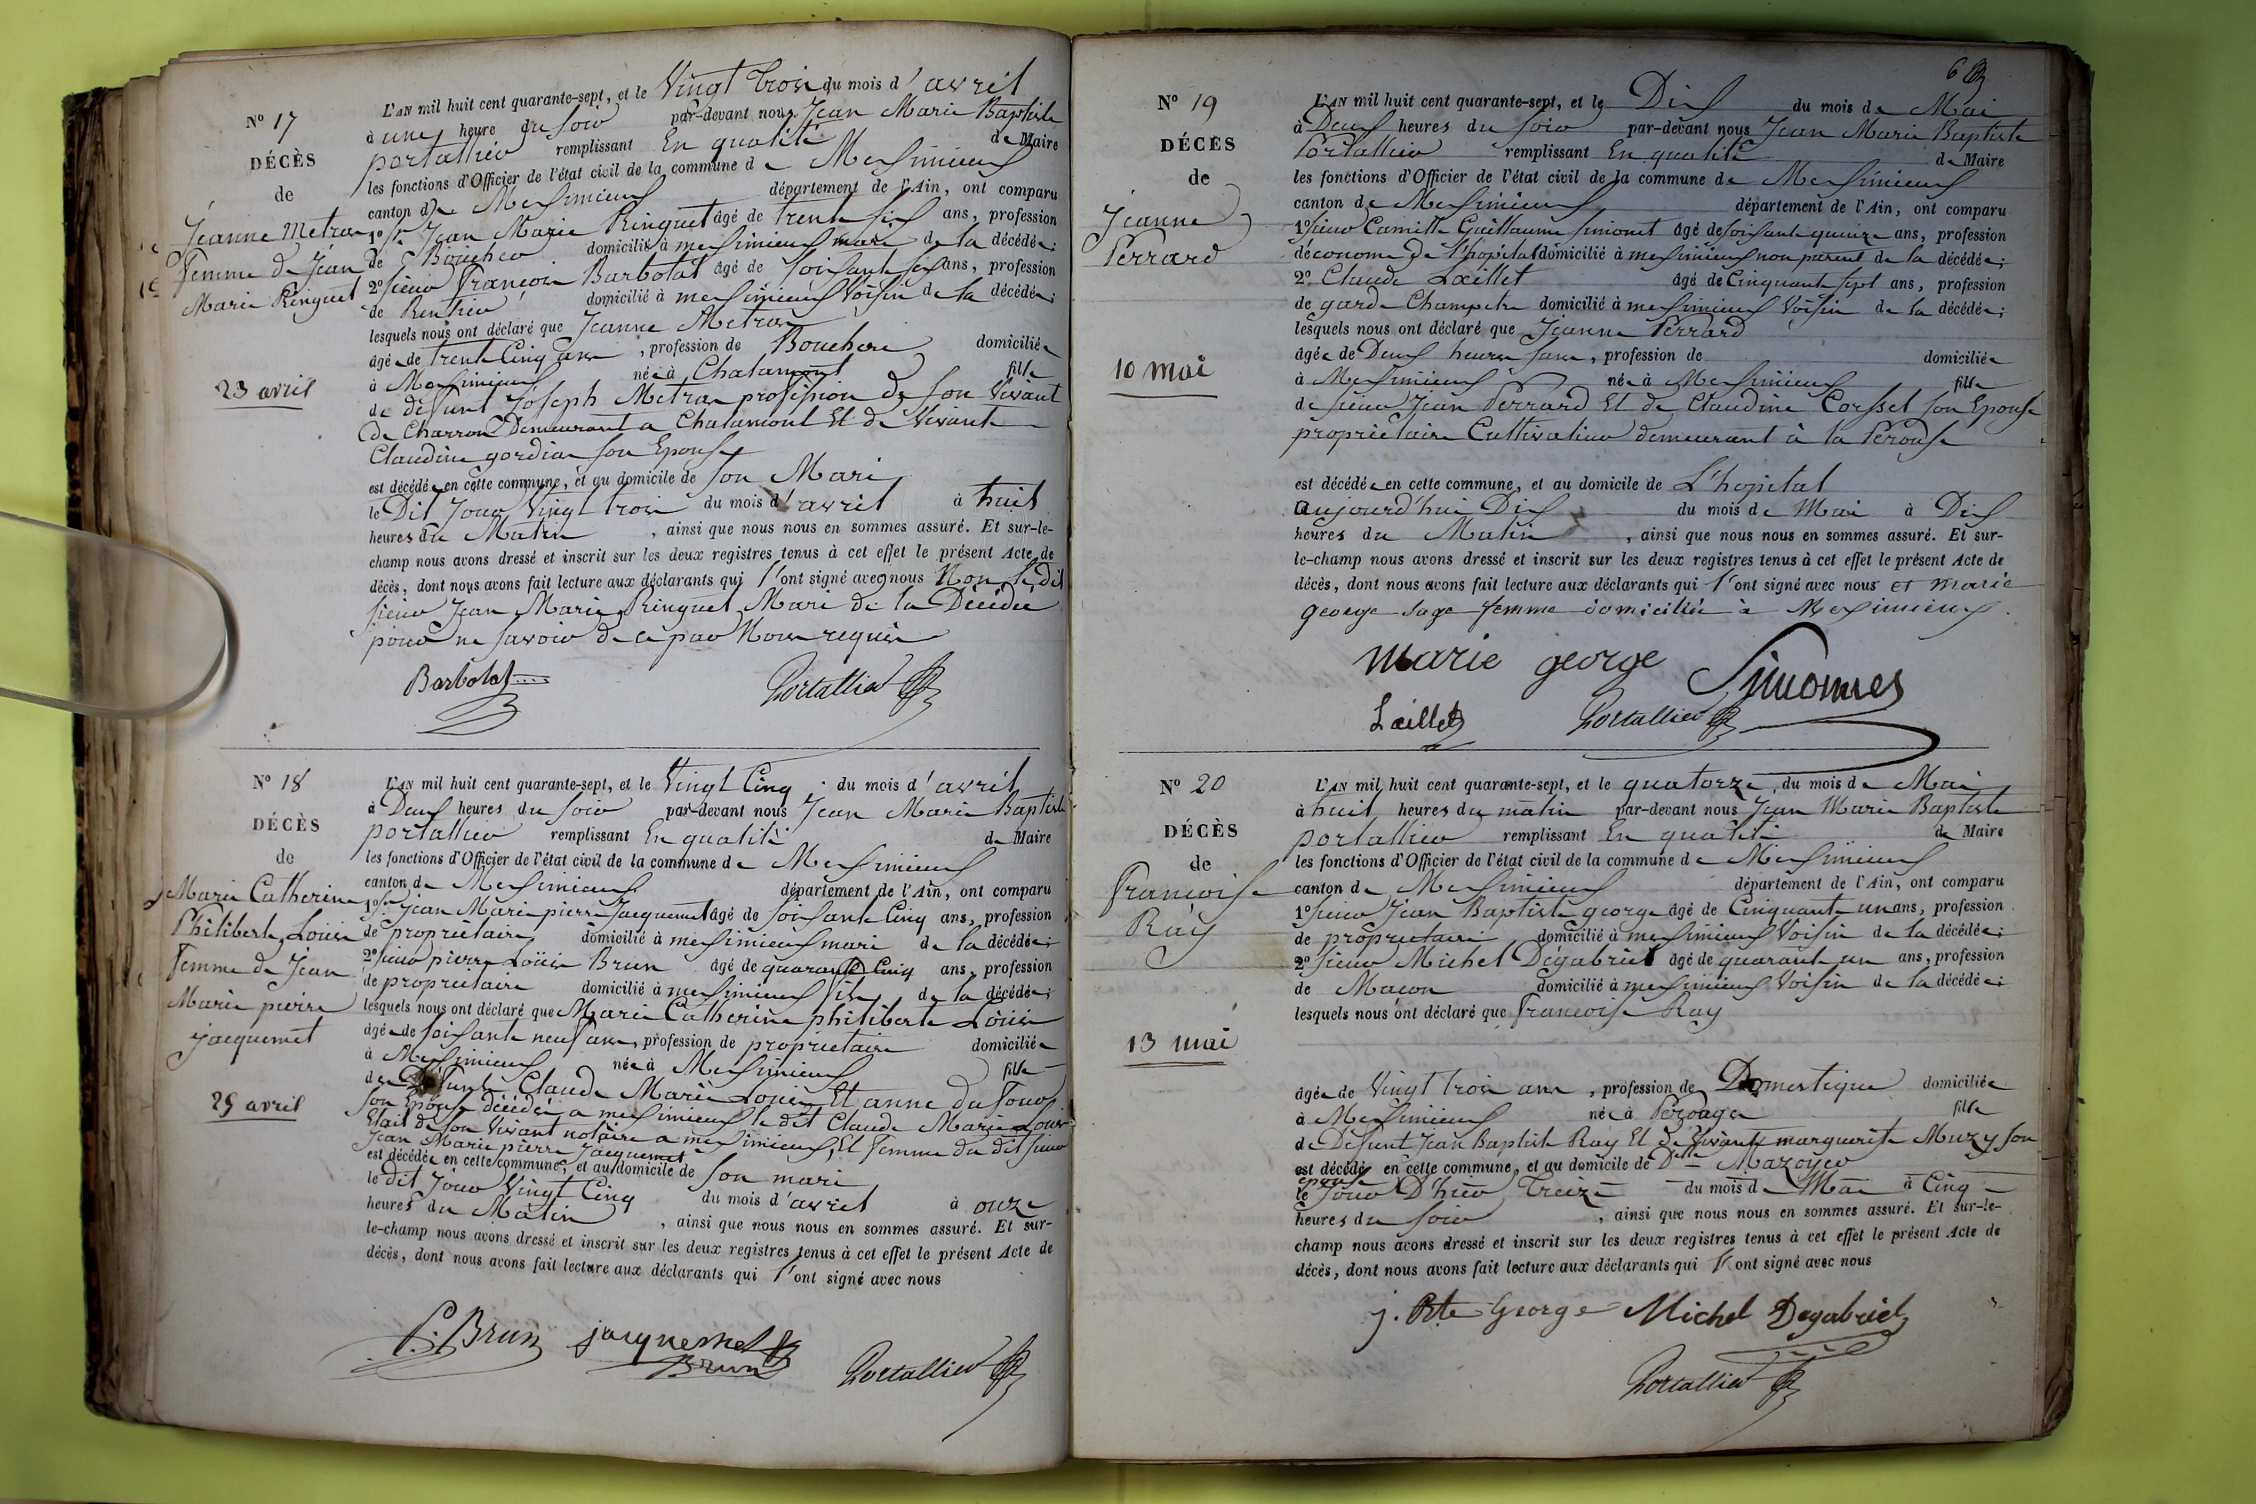 N° 17
DÉCÈS
de
Jeanne Metras
Femme de Jean
Marie Ringuet
23 avril
L'AN mil huit cent quarante-sept, et le Vingt trois du mois d'avril
à une heure du soir par-devant nous Jean Marie Baptiste
portallier remplissant En qualité de Maire
les fonctions d'Officier de l'état civil de la commune de Meximieux
canton de Meximieux département de l'Ain, ont comparu
1° Sr Jean Marie Ringuet âgé de trente six ans, profession
de Boucher domicilié à meximieux mari de la décédée;
2° sieur François Barbolat âgé de soixante six ans, profession
de Rentier domicilié à meximieux Voisin de la décédée;
lesquels nous ont déclaré que Jeanne Metras
âgée de trente Cinq ans, profession de Bouchere domiciliée
à Meximieux née à Chalamont fille
de défunt Joseph Metras profession de son Vivant
de Charron Demeurant a Chalamont Et de Vivante
Claudine gordian son Epouse
est décédée en cette commune, et au domicile de son Mari
le Dit Jour Vingt trois du mois d'avril à huit
heures du Matin, ainsi que nous nous en sommes assuré. Et sur-le-
champ nous avons dressé et inscrit sur les deux registres tenus à cet effet le présent Acte de
décès, dont nous avons fait lecture aux déclarants qui l'ont signé avec nous Non le dit
sieur Jean Marie Ringuet Mari de la Décédée
pour ne savoir de ce par Nous requis
Barbolat Portallier
N° 18
DÉCÈS
de
Marie Catherine
Philiberte Louis
Femme de Jean
Marie pierre
jacquemet
25 avril
L'AN mil huit cent quarante-sept, et le Vingt Cinq du mois d'avril
à Deux heures du soir par-devant nous Jean Marie Baptiste
portallier remplissant En qualité de Maire
les fonctions d'Officier de l'état civil de la commune de Meximieux
canton de Meximieux département de l'Ain, ont comparu
1° Sr jean Marie pierre Jacquemet âgé de soixante Cinq ans, profession
de propriétaire domicilié à meximieux mari de la décédée;
2° sieur pierre Louis Brun âgé de quarante Cinq ans, profession
de propriétaire domicilié à meximieux fils de la décédée;
lesquels nous ont déclaré que Marie Catherine philiberte Louis
âgée de soixante neuf ans, profession de propriétaire domiciliée
à Meximieux née à Meximieux fille
de Défunts Claude Marie Louis Et anne du Four
son Epouse décédée a meximieux le dit Claude Marie Louis
Etait de son Vivant notaire a meximieux, Et femme du dit sieur
Jean Marie pierre Jacquemet
est décédée en cette commune, et au domicile de son mari
le dit jour Vingt Cinq du mois d'avril à onze
heures du Matin, ainsi que nous nous en sommes assuré. Et sur-
le-champ nous avons dressé et inscrit sur les deux registres tenus à cet effet le présent Acte de
décès, dont nous avons fait lecture aux déclarants qui l'ont signé avec nous
P. Brun jacquemet
Brun Portallier
N° 19
DÉCÈS
de
Jeanne
Perrard
10 mai
L'AN mil huit cent quarante-sept, et le Dix du mois de Mai
à Deux heures du soir par-devant nous Jean Marie Baptiste
Portallier remplissant En qualité de Maire
les fonctions d'Officier de l'état civil de la commune de Meximieux
canton de Meximieux département de l'Ain, ont comparu
1° sieur Camille Guillaume simonet âgé de soixante quinze ans, profession
d'économe de l'hopital domicilié à meximieux non parent de la décédée;
2° Claude Laillet âgé de Cinquante sept ans, profession
de garde Champetre domicilié à meximieux Voisin de la décédée;
lesquels nous ont déclaré que Jeanne Perrard
âgée de Deux heures sans, profession de domiciliée
à Meximieux née à Meximieux fille
de sieur Jean Perrard Et de Claudine Corsset son Epouse
propriétaire Cultivateur demeurant à la Perouse
est décédée en cette commune, et au domicile de L'hopital
aujourd'hui Dix du mois de Mai à Dix
heures du Matin, ainsi que nous nous en sommes assuré. Et sur-
le-champ nous avons dressé et inscrit sur les deux registres tenus à cet effet le présent Acte de
décès, dont nous avons fait lecture aux déclarants qui l'ont signé avec nous et marie
george sage femme domiciliée a Meximieux.
marie george Simonnet
Laillet Portallier
N° 20
DÉCÈS
de
Françoise
Ray
13 mai
L'AN mil huit cent quarante-sept, et le quatorze, du mois de Mai
à huit heures du matin par-devant nous Jean Marie Baptiste
portallier remplissant En qualité de Maire
les fonctions d'Officier de l'état civil de la commune de Meximieux
canton de Meximieux département de l'Ain, ont comparu
1° sieur Jean Baptiste george âgé de Cinquante un ans, profession
de propriétaire domicilié à meximieux Voisin de la décédée;
2° sieur Michel Dégabriel âgé de quarante un ans, profession
de Macon domicilié à meximieux Voisin de la décédée;
lesquels nous ont déclaré que Francoise Ray
âgée de Vingt trois ans, profession de Domestique domiciliée
à Meximieux née à Perouges fille
de Défunt Jean Baptiste Ray Et de Vivante marguerite Muzy son
est décédé en cette commune, et au domicile de Delle Mazoyer
épouse
le Jour D'hier Treize du mois de Mai à Cinq
heures du soir, ainsi que nous nous en sommes assuré. Et sur-le-
champ nous avons dressé et inscrit sur les deux registres tenus à cet effet le présent Acte de
décès, dont nous avons fait lecture aux déclarants qui l'ont signé avec nous
j. Bte George Michel Degabriel
Portallier